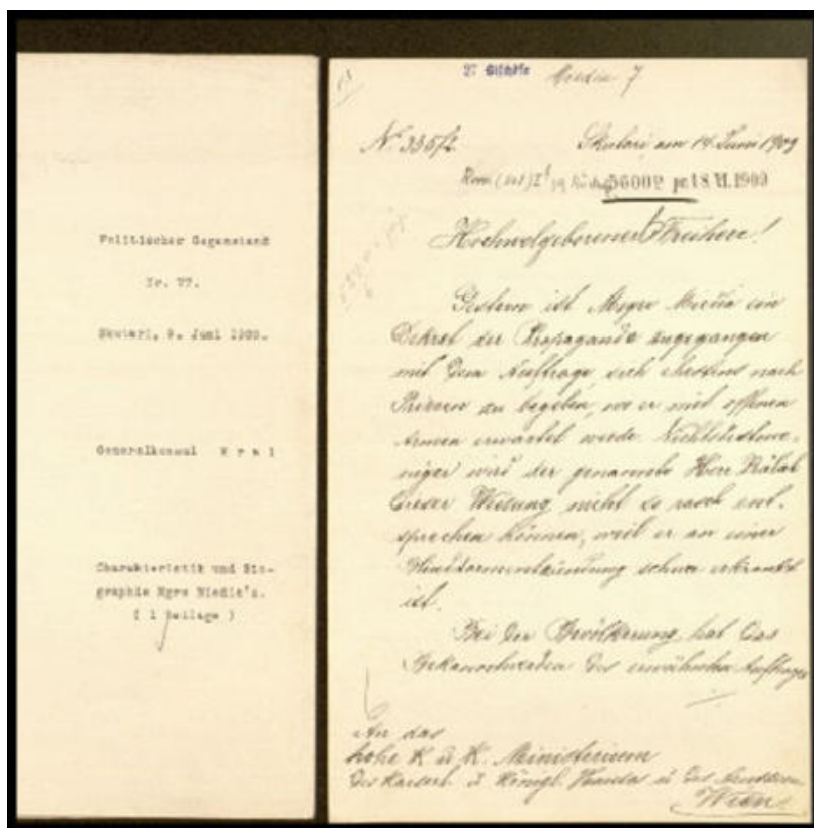 Politischer Gegenstand
Nr. 77.
Skutari, 9. Juni 1909.
Generalkonsul K r a l
Charakteristik und Bio-
graphie Mgre Miedie's.
( 1 Beilage )
27 Bischöfe
Miedia 7
No. 335/2 Skutari am 14. Juni 1909
5600 pr 18.VI.1909
Hochwolgeborener Freiherr!
Gestern ist Msgre Miedia ein
Dekret der Propaganda zugegangen
mit dem Auftrage, sich ehestens nach
Prizren zu begeben, wo er mit offenen
Armen erwartet werde. Nichtsdestowe-
niger wird der genannte Herr Prälat
dieser Weisung nicht so rasch ent-
sprechen können, weil er an einer
Blinddarmentzündung schwer erkrankt
ist.
Bei der Bevölkerung hat das
Bekanntwerden des erwähnten Auftrages
An das
hohe K. u. K. Ministerium
des Kaiserl. u. Königl. Hauses u. des Aeussern
Wien